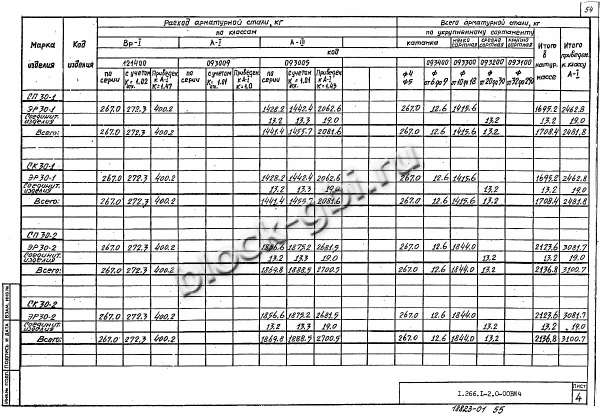 54
Расход арматурной стали, кг
Всего арматурной стали, кг
по классам
по укрупненному сортаменту
Марка изделия
Код изделия
Вр-I А-I А-III
катанка мелко сортная средне сортная крупно сортная
Итого в натур. массе
Итого приведен. к классу А-I
код
121400 093009 093005
093400 093300 093200 093100
по серии с учетом К=1.02 Приведен. к А-I К=1.47
по серии с учетом К=1.01 Приведен. к А-I К=1.0
по серии с учетом К=1.01 Приведен. к А-I К=1.43
ф4 ф5
ф от 6 до 9
ф от 10 до 18
ф от 20 до 30
ф от 32 до 40
СП 30-1
ЭР30-1 267.0 272.3 400.2 1428.2 1442.4 2062.6 267.0 12.6 1415.6 1695.2 2462.8
Соединит. изделия 13.2 13.3 19.0 13.2 13.2 19.0
Всего: 267.0 272.3 400.2 1441.4 1455.7 2081.6 267.0 12.6 1415.6 13.2 1708.4 2481.8
СК 30-1
ЭР30-1 267.0 272.3 400.2 1428.2 1442.4 2062.6 267.0 12.6 1415.6 1695.2 2462.8
Соединит. изделия 13.2 13.3 19.0 13.2 13.2 19.0
Всего: 267.0 272.3 400.2 1441.4 1455.7 2081.6 267.0 12.6 1415.6 13.2 1708.4 2481.8
СП 30-2
ЭР30-2 267.0 272.3 400.2 1856.6 1875.2 2681.5 267.0 12.6 1844.0 2123.6 3081.7
Соединит. изделия 13.2 13.3 19.0 13.2 13.2 19.0
Всего: 267.0 272.3 400.2 1869.8 1888.5 2700.5 267.0 12.6 1844.0 13.2 2136.8 3100.7
СК 30-2
ЭР30-2 267.0 272.3 400.2 1856.6 1875.2 2681.5 267.0 12.6 1844.0 2123.6 3081.7
Соединит. изделия 13.2 13.3 19.0 13.2 13.2 19.0
Всего: 267.0 272.3 400.2 1869.8 1888.5 2700.5 267.0 12.6 1844.0 13.2 2136.8 3100.7
block-gbi.ru
Инв. № подл. Подпись и дата Взам. инв. №
1.266.1-2.0-00ВМ4
Лист
4
18823-01 55